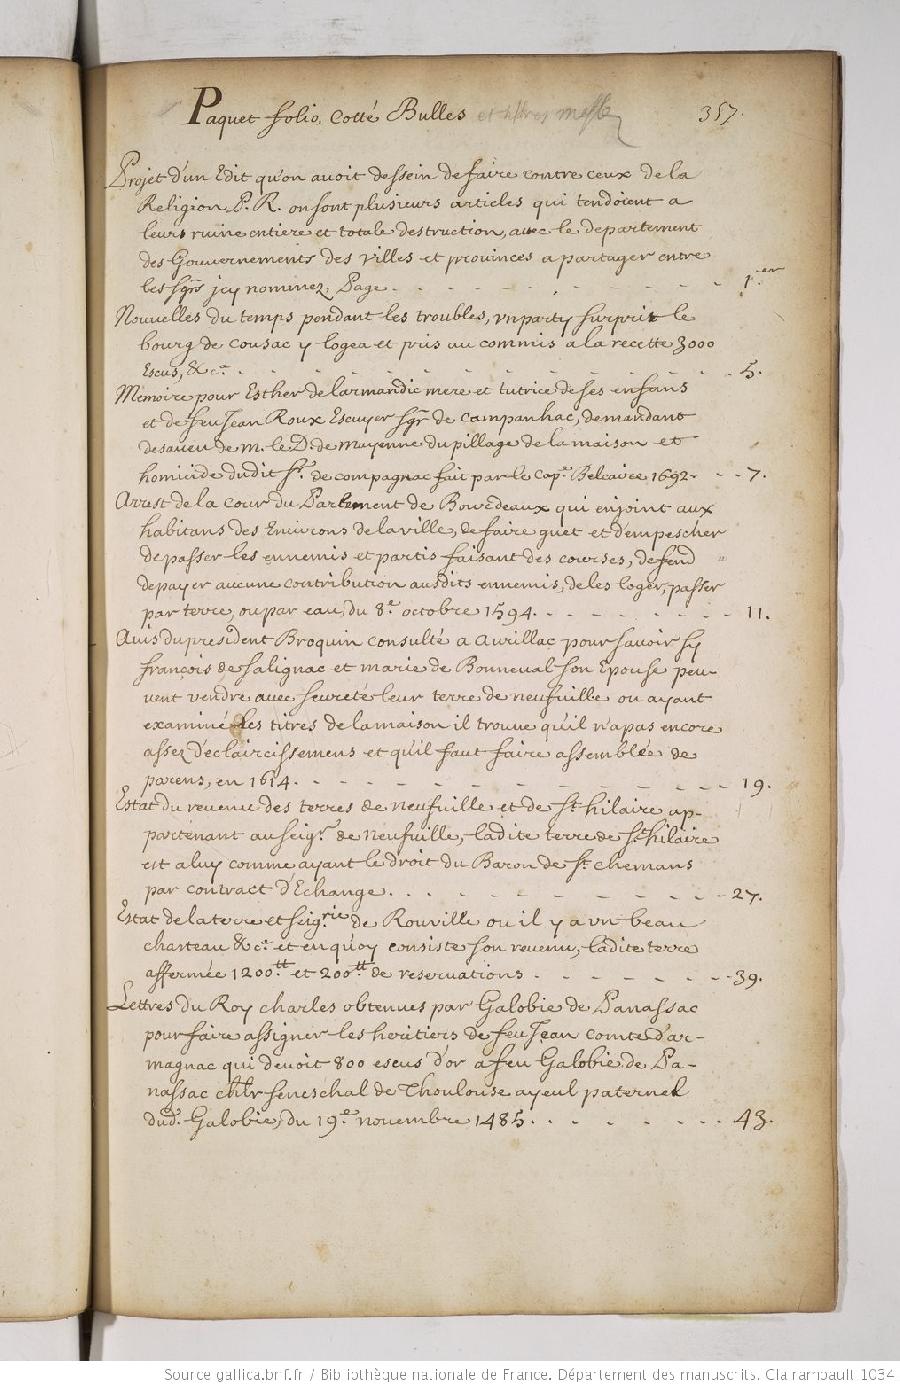 Paquet folio cotté Bulles et
357.
Projet d'un Edit qu'on avoit dessein de faire contre ceux de la
Religion P. R. ou sont plusieurs articles qui tendoient a
leurs ruine entiere et totale destruction, avec le departement
des Gouvernements des villes et provinces a partager entre
les sgrs icy nommez. Page . . . . . . . . . 1.er
Nouvelles du temps pendant les troubles, un party surprit le
bourg de Cousac y logea et pris au commis a la recette 3000
Escus, &c.ª . . . . . . . . . . 5.
Memoire pour Esther de Larmandie mere et tutrice de ses enfans
et de feu Jean Roux Escuyer sgr de Campanhac, demandant
desaveu de M. le D. de Mayenne du pillage de la maison et
homicide dudit sr. de Compagnac fait par le Cap.e Belcaire 1692. - - 7.
Arrest de la Cour du Parlement de Bourdeaux qui enjoint aux
habitans des Environs de la ville, de faire guet et d'empescher
de passer les ennemis et partis faisant des courses, defend
de payer aucune contribution ausdits ennemis, de les loger, passer
par terre, ou par eau, du 8.e octobre 1594. - - - - - - - 11.
Avis du president Broquin consulté a Aurillac pour savoir sy
françois de Salignac et marie de Bonneval son Epouse peu-
vent vendre avec seureté leur terre de neufville ou ayant
examiné les titres de la maison il trouve qu'il n'a pas encore
assez d'eclaircissemens et qu'il faut faire assemblée de
parens, en 1614. - - - - - - - - - - - 19.
Estat du revenu des terres de neufville et de St hilaire ap-
partenant au seigr. de neufville, ladite terre de St hilaire
est a luy comme ayant le droit du Baron de St chemans
par contract d'Echange . . . . - - - - - - 27.
Estat de la terre et seig.rie de Rouville ou il y a un beau
chasteau &c.ª et en quoy consiste son revenu, ladite terre
affermée 1200tt et 200tt de reservations . - - - - - - 39.
Lettres du Roy charles obtenues par Galobie de Panassac
pour faire assigner les heritiers de feu Jean comte d'ar-
magnac qui devoit 800 escus d'or a feu Galobie de Pa-
nassac chlr seneschal de Thoulouse ayeul paternel
dud. Galobie, du 19.e novembre 1485. . . . - - - - 43.
Source gallica.bnf.fr / Bibliothèque nationale de France. Département des manuscrits. Clairambault 1034